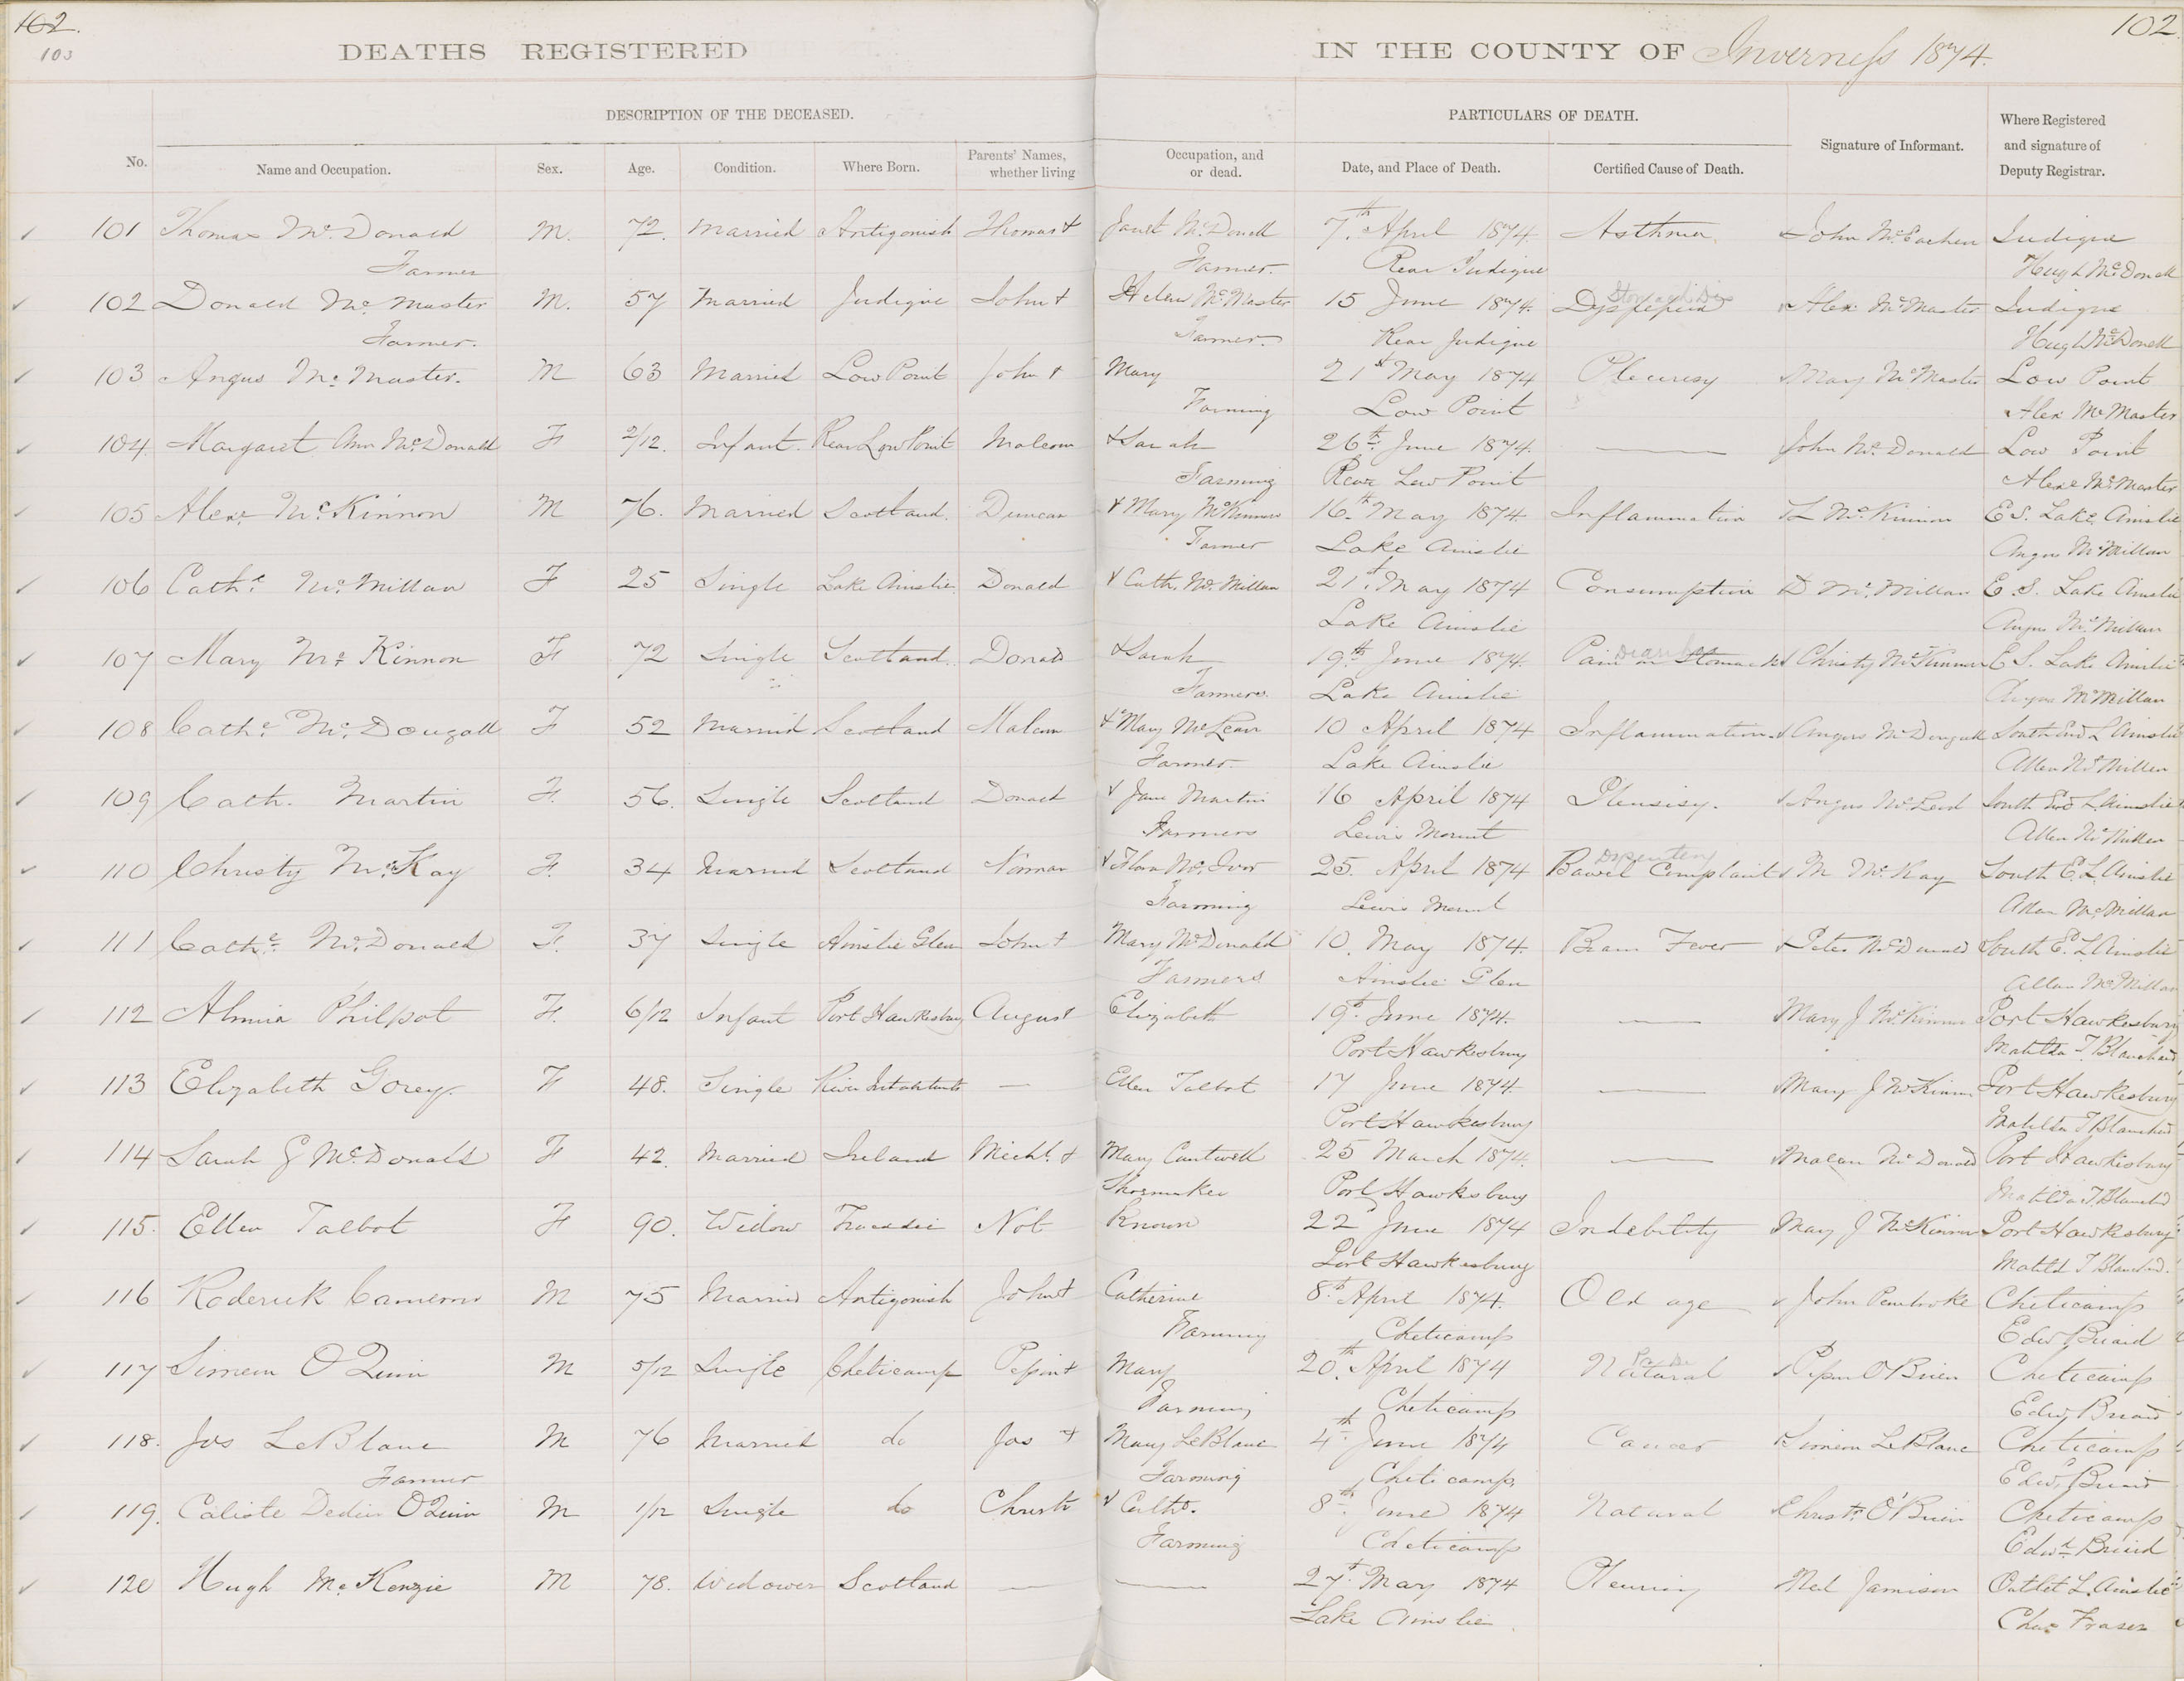 102.
102
103
DEATHS REGISTERED IN THE COUNTY OF Inverness 1874.
DESCRIPTION OF THE DECEASED. PARTICULARS OF DEATH.
No. Name and Occupation. Sex. Age. Condition. Where Born. Parents' Names, whether living Occupation, and or dead. Date, and Place of Death. Certified Cause of Death. Signature of Informant. Where Registered and signature of Deputy Registrar.
101 Thomas McDonald M. 72. Married Antigonish Thomas + Janet McDonell 7th April 1874. Asthma John McEachen Judique
Farmer Farmer. Rear Judique Hugh McDonell
102 Donald Mc Master M. 57 Married Judique John + Helen McMaster 15 June 1874. Dyspepsia Stomach Dis Alex McMaster Judique
Farmer. Farmer. Rear Judique Hugh McDonell
103 Angus Mc Master. M 63 Married Low Point John + Mary 21st May 1874 Pleuresy Mary McMaster Low Point
Farming Low Point Alex McMaster
104. Margaret Ann McDonald F 2/12. Infant. Rear Low Point Malcom + Sarah 26th June 1874. — John McDonald Low Point
Farming Rear Low Point Alexr McMaster
105 Alexr McKinnon M 76. Married Scotland. Duncan + Mary McKinnon 16th May 1874. Inflammation L McKinnon E S. Lake Ainslie
Farmer Lake Ainslie Angus McMillan
106 Cathe McMillan F 25 Single Lake Ainslie. Donald + Cath. McMillan 21st May 1874 Consumption D McMillan E. S. Lake Ainslie
Lake Ainslie Angus McMillan
107 Mary McKinnon F 72 Single Scotland. Donald + Sarah 19th June 1874. Pain in Stomach Diarrhea Christy McKinnon E S. Lake Ainslie
Farmers. Lake Ainslie Angus McMillan
108 Cathe McDougall F 52 Married Scotland Malcom + Mary McLean 10 April 1874 Inflammation. Angus McDougall South End L Ainslie
Farmer. Lake Ainslie Allan McMillan
109 Cath. Martin F. 56. Single Scotland Donald + Jane Martin 16 April 1874 Pleusisy. Angus McLeod South End L. Ainslie
Farmers Lewis Mount Allan McMillan
110 Christy McKay F. 34 Married Scotland Norman + Flora McIvor 25. April 1874 Bowel Complaint Dysentery M McKay South E. L. Ainslie
Farming Lewis Mount Allan McMillan
111 Cathe McDonald F. 37 Single Ainslie Glen John + Mary McDonald 10. May 1874. Brain Fever Peter McDonald South E. L Ainslie
Farmers Ainslie Glen Allan McMillan
112 Almira Philpot F. 6/12 Infant Port Hawkesbury August Elizabeth 19th June 1874. — Mary J McKinnon Port Hawkesbury
Port Hawkesbury Matilda T Blanchard
113 Elizabeth Gorey. F 48. Single River Inhabitants — Ellen Talbot 17 June 1874. — Mary J McKinnon Port Hawkesbury
Port Hawkesbury Matilda T Blanchard
114 Sarah G McDonald F 42. Married Ireland Michl. + Mary Cantwell 25 March 1874. — Malcom McDonald Port Hawkesbury
Shoemaker Port Hawksbury Matilda T. Blanchd
115. Ellen Talbot F 90. Widow Tracadie Not Known 22 June 1874 Indebility Mary J McKinnon Port Hawkesbury
Port Hawkesbury Matild T Blanchd.
116 Roderick Cameron M 75 Married Antigonish John + Catherine 8th April 1874. Old age John Pembroke Cheticamp
Farming Cheticamp Edw Briard
117 Simeon O'Quin M 5/12 Single Cheticamp Pepin + Mary 20th April 1874 Natural Pepin O'Brien Cheticamp
Farming Cheticamp Edw Briard
118. Jos LeBlanc M 76 Married do Jos + Mary LeBlanc 4th June 1874 Cancer Simeon LeBlanc Cheticamp
Farmer Farming Cheticamp Edw. Briard
119. Caliste Dedier O'Quin M 1/12 Single do Christr + Cathe. 8th June 1874 Natural Christr O'Brien Cheticamp
Farming Cheticamp Edwd Briard
120 Hugh McKenzie M 78. Widower Scotland — — 27th May 1874 Pleurisy Neil Jamison Outlet L. Ainslie
Lake Ainslie Chas Fraser